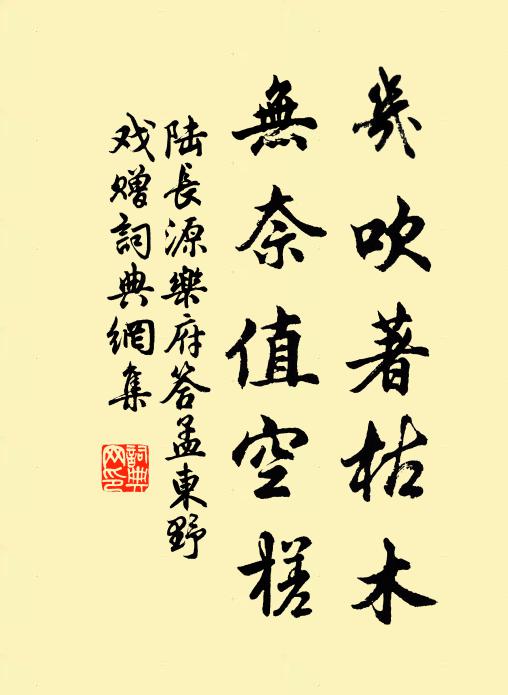 幾吹著枯木
無奈值空槎
陆長源樂府答孟東野
戏赠詞典網集
詞典网印